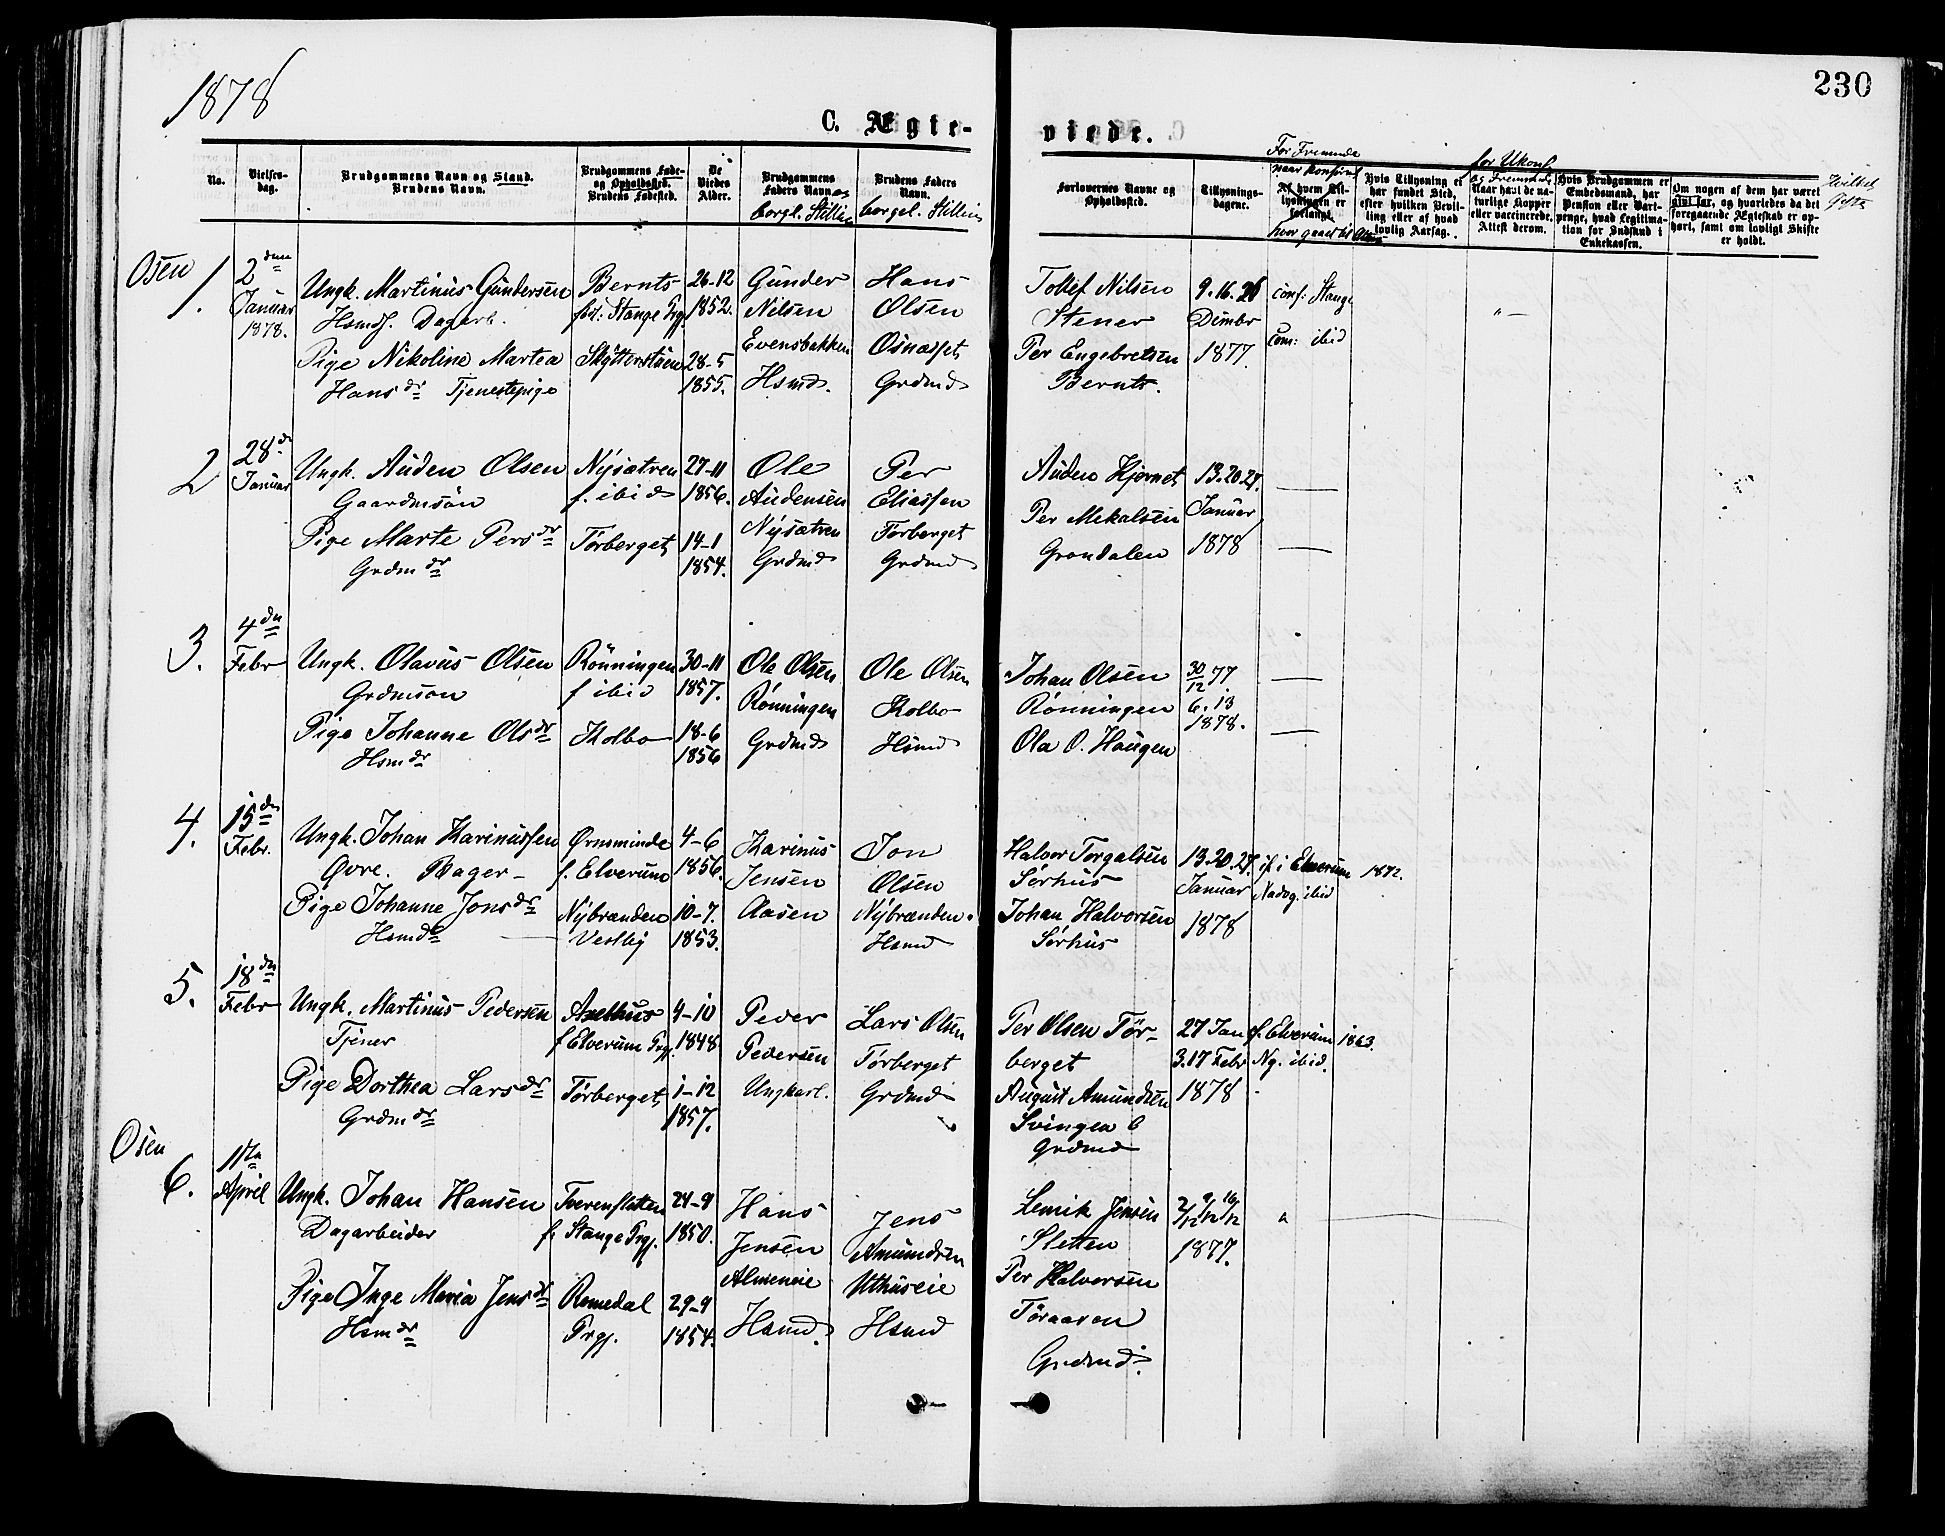 1878
230
C. Ægte-
viede.
No.
Vielses-
dag.
Brudgommens Navn og Stand.
Brudens Navn.
Brudgommens Føde-
og Opholdssted.
Brudens Fødested.
De
Viedes
Alder.
Brudgommens
Faders Navn og
borgl. Stilling
Brudens Faders
Navn.
borgel. Stilling
Forlovernes Navne og
Opholdssted.
Tillysnings-
dagene.
For Fremmede
naar konfirm.
Af hvem Til-
lysningen er
forlangt.
hvor gaaet til
Hvis Tillysning ei
har fundet Sted,
efter hvilken Bevil-
ling eller af hvad
lovlig Aarsag.
for Ukonf.
og Fremmede
Naar havt de na-
turlige Kopper
eller vaccinerede.
Attest derom.
Hvis Brudgommen er
Embedsmand, har
Pension eller Vart-
penge, hvad Legitima-
tion for Indskud i
Enkekassen.
Om nogen af dem har været
gift før, og hvorledes da det
foregaaende Ægteskab er op-
hørt, samt om lovligt Skifte
er holdt.
Osen
1.
2den
Januar
1878.
Ungk. Martinus Gundersen
Hsmds. Dagarb.
Pige Nikoline Martea
Hansdr Tjenestepige
Bernts
fød: Stange Prg.
Skytterstuen
26-12
1852.
28-5
1855.
Gunder
Nilsen
Evensbakken
Hsmd.
Hans
Olsen
Osnæset
Grdmd
Tollef Nilsen
Stener
Per Engebretsen
Bernts.
9. 16. 26
Decmbr
1877.
conf: Stange
Com: ibid
" —
2
28de
Januar
Ungk. Auden Olsen
Gaardmsøn
Pige Marte Persdr
Grdmdr
Nysætren
f. ibid
Tørberget
27-11
1856.
14-1
1854.
Ole
Audensen
Nysætren
Grdmd
Per
Eliassen
Tørberget
Grdmd
Auden Kjernet
Per Mekalsen
Grøndalen
13. 20. 27.
Januar
1878
3.
4den
Febr
Ungk. Olavus Olsen
Grdmsøn
Pige Johanne Olsdr
Hsmdr
Rønningen
f ibid
Kolbo
30-11
1857.
18-6
1856
Ole Olsen
Rønningen
Grdmd
Ole Olsen
Kolbo
Hsmd
Johan Olsen
Rønningen
Ola O. Haugen
30/12 77
6. 13
1878.
4.
15de
Febr.
Ungk. Johan Karinussen
Øvre. Bager -
Pige Johanne Jonsdr
Hsmdr
Ørnsminde
f. Elverum
Nybrænden
Vestby
4-6
1856.
10-7.
1853.
Karinus
Jensen
Aasen
Jon
Olsen
Nybrænden.
Hsmd
Halvor Torgalsen
Sørhus
Johan Halvorsen
Sørhus
13. 20. 27.
Januar
1878
i Elverum
Nadvg. ibid
1872.
5.
18de
Febr
Ungk. Martinus Pedersen
Tjener
Pige Dorthea Larsdr
Grdmdr
Axelhus
f Elverum Prg.
Tørberget
4-10
1848
1-12
1857.
Peder
Pedersen
Ungkarl.
Lars Olsen
Tørberget
Grdmd
Per Olsen Tør-
berget
August Amundsen
Svingen
Grdmd
27 Jan
3. 17 Febr
1878
f. Elverum
Ng. ibid.
1863.
Osen
6.
11te
April
Ungk. Johan Hansen
Dagarbeider
Pige Inge Maria Jensdr
Hsmdr
Tverenflatten
f. Stange Prgj.
Romedal
Prgj.
24-9
1850.
29-9
1854.
Hans
Jensen
Almeneie
Hsmd.
Jens
Amundsen
Uthuseie
Hsmd
Lemik Jensen
Sletten
Per Halvorsen
Tøraasen
Grdmd.
2/12 9/12 16/12
1877.